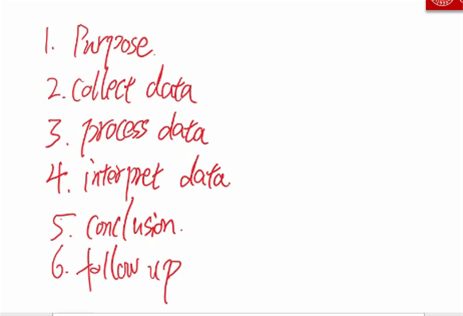 1. Purpose.
2. collect data
3. process data
4. interpret data
5. conclusion.
6. follow up